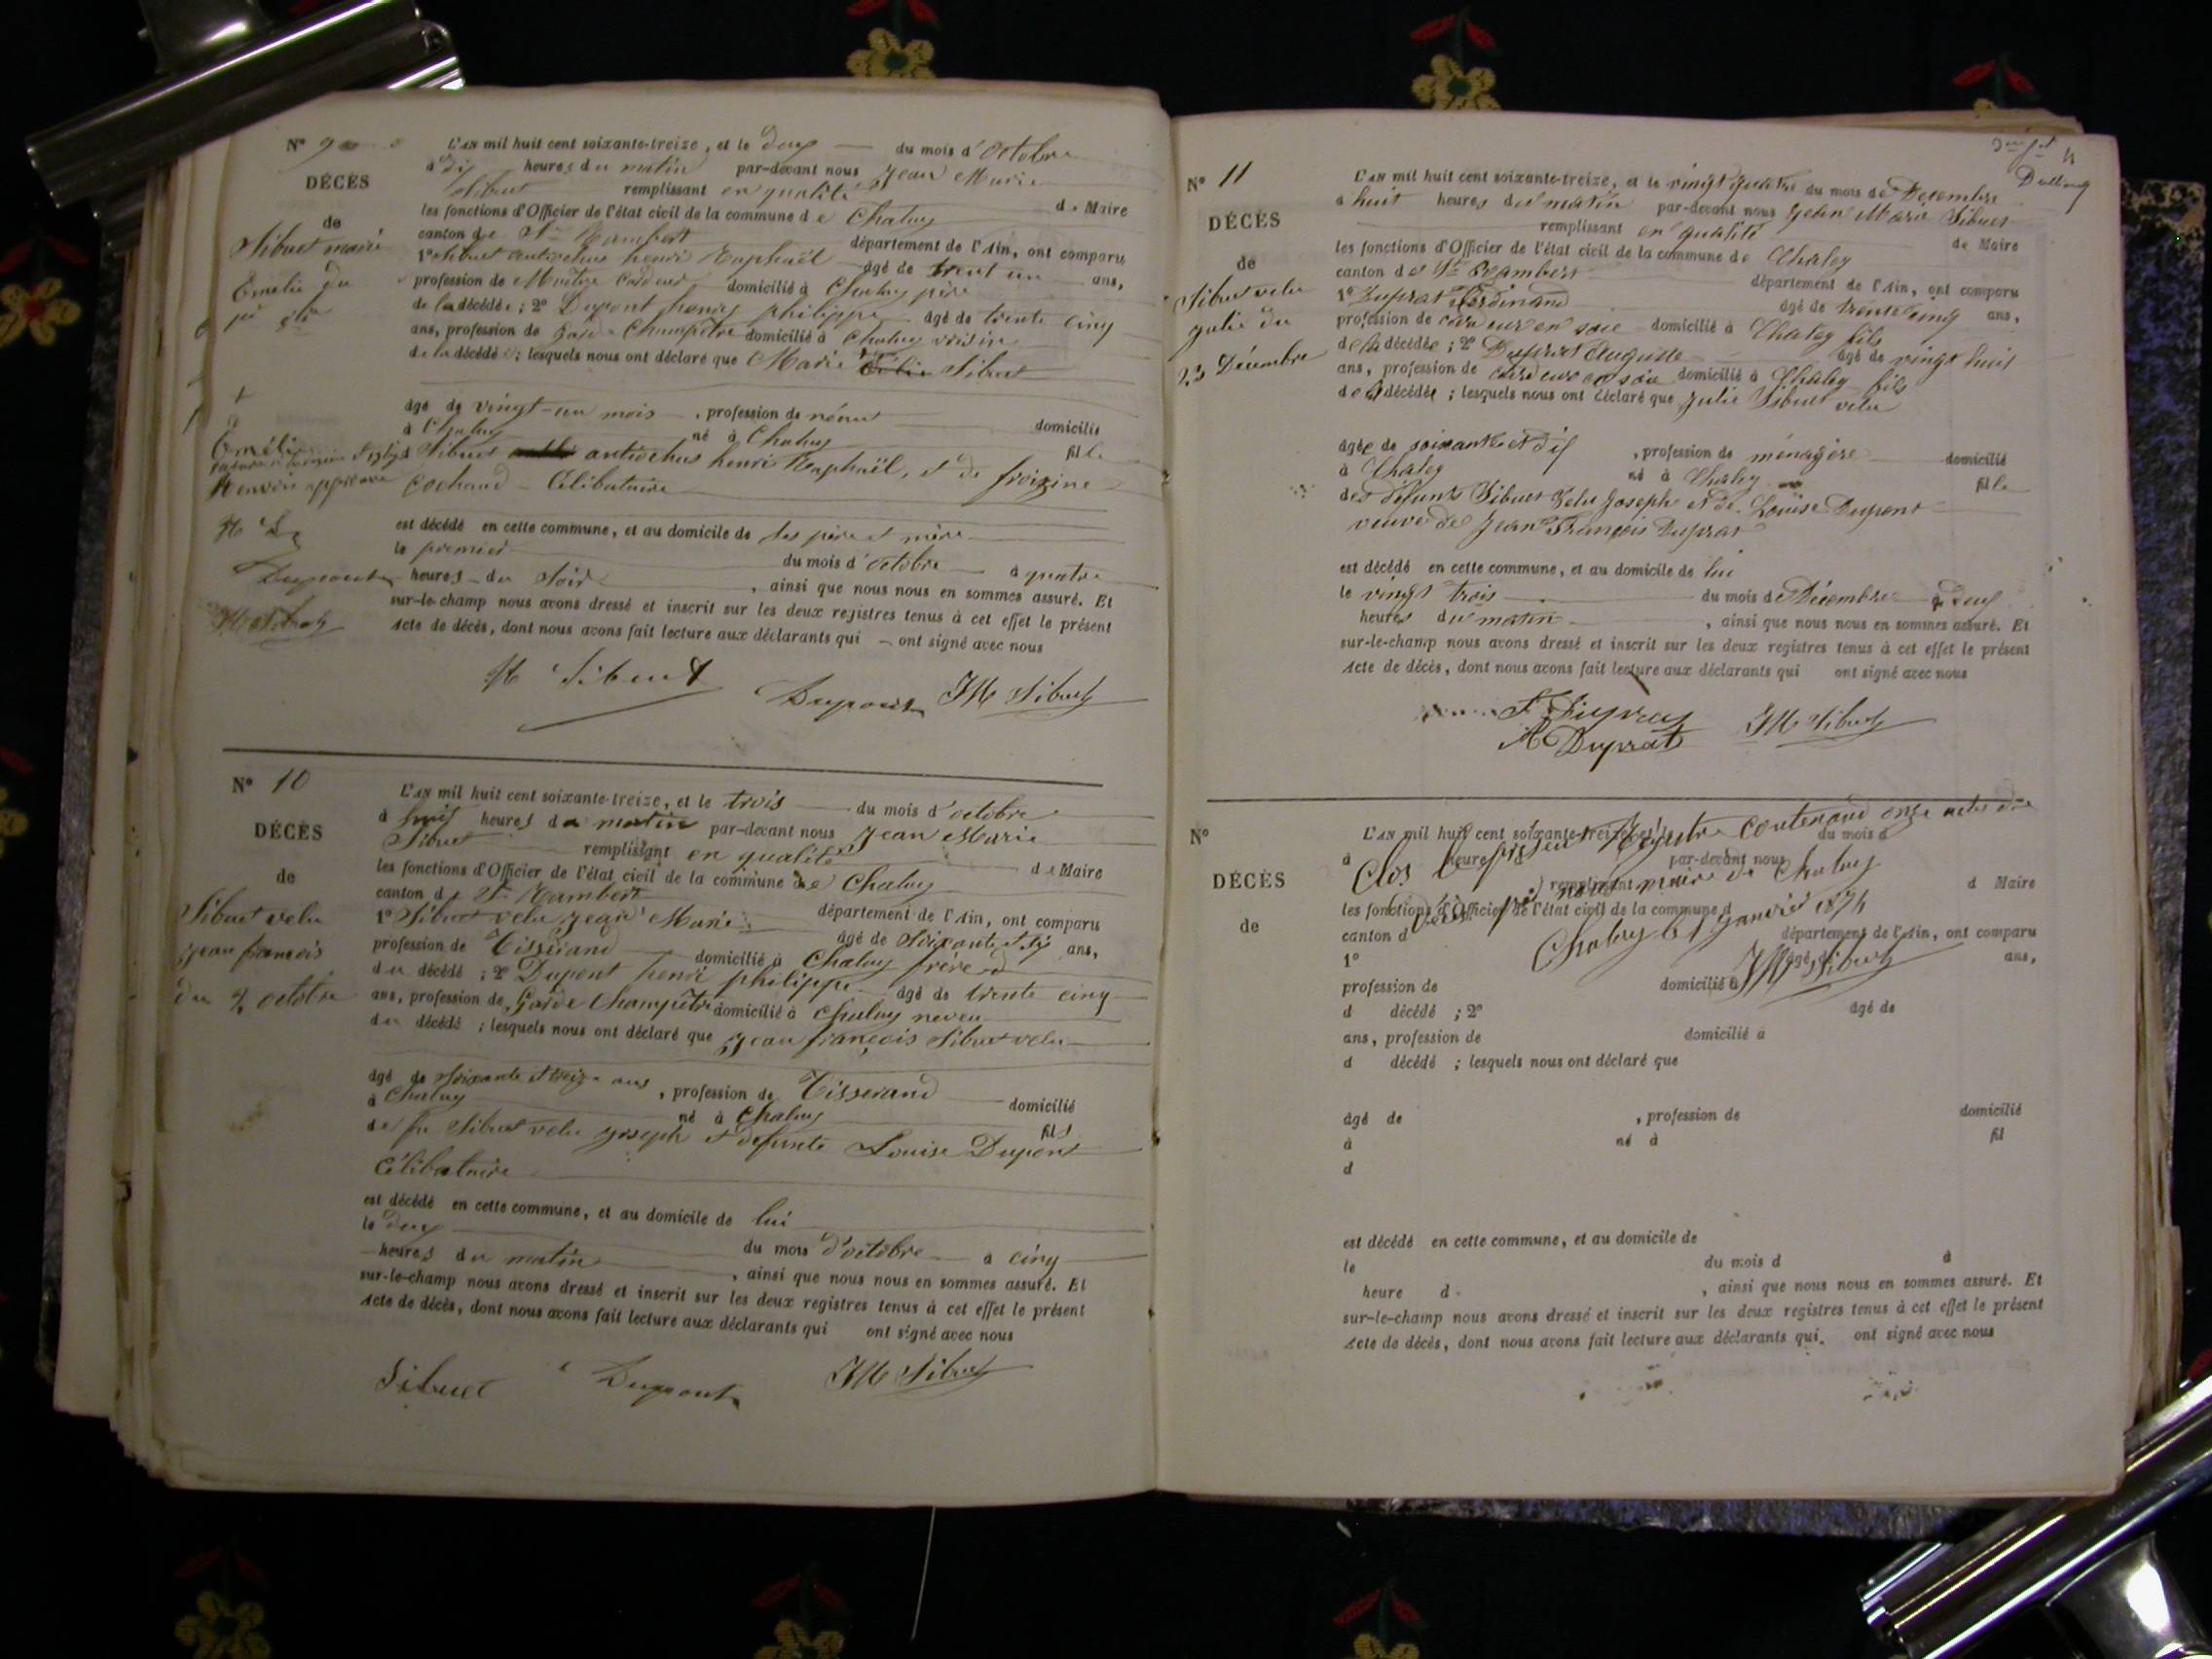 N° 9
DÉCÈS
de
Sibuet marie
Emelie du
1er 8bre
L'AN mil huit cent soixante-treize, et le deux du mois d'Octobre
à dix heures du matin par-devant nous Jean Marie
Sibuet remplissant en qualité de Maire
les fonctions d'Officier de l'état civil de la commune de Chaley
canton de St Rambert département de l'Ain, ont comparu
1° Sibuet antiochus henri Raphaël âgé de trent un ans,
profession de Maître Cardeur domicilié à Chaley père
de la décédée; 2° Dupont henry philippe âgé de trente cinq
ans, profession de Garde Champêtre domicilié à Chaley voisin
de la décédée; lesquels nous ont déclaré que Marie Sibuet
âgé de vingt-un mois, profession de néant domicilié
à Chaley né à Chaley fille
Sibuet antiochus henri Raphaël, et de froizine
Cochand Célibataire
est décédé en cette commune, et au domicile de ses père et mère
le premier du mois d'octobre à quatre
heures du soir, ainsi que nous nous en sommes assuré. Et
sur-le-champ nous avons dressé et inscrit sur les deux registres tenus à cet effet le présent
Acte de décès, dont nous avons fait lecture aux déclarants qui ont signé avec nous
Emélie
renvoi approuvé
H S
Dupont
JM Sibuet
H Sibuet Dupont JM Sibuet
N° 10
DÉCÈS
de
Sibuet velu
jean francois
du 2 octobre
L'AN mil huit cent soixante-treize, et le trois du mois d'octobre
à huit heures du matin par-devant nous Jean Marie
Sibuet remplissant en qualité de Maire
les fonctions d'Officier de l'état civil de la commune de Chaley
canton de St Rambert département de l'Ain, ont comparu
1° Sibuet velu jean Marie âgé de soixante et dix ans,
profession de Tisserand domicilié à Chaley frère
du décédé; 2° Dupont henri philippe âgé de trente cinq
ans, profession de Garde Champêtre domicilié à Chaley neveu
du décédé; lesquels nous ont déclaré que jean françois Sibuet velu
âgé de soixante et treize ans, profession de Tisserand domicilié
à Chaley né à Chaley fils
de fu Sibuet velu joseph et defunte Louise Dupont
Célibataire
est décédé en cette commune, et au domicile de lui
le deux du mois d'octobre à cinq
heures du matin, ainsi que nous nous en sommes assuré. Et
sur-le-champ nous avons dressé et inscrit sur les deux registres tenus à cet effet le présent
Acte de décès, dont nous avons fait lecture aux déclarants qui ont signé avec nous
Sibuet Dupont JM Sibuet
N° 11
DÉCÈS
de
Sibuet velu
julie du
23 Décembre
L'AN mil huit cent soixante-treize, et le vingt quatre du mois de Décembre
à huit heures du matin par-devant nous Jean Marie Sibuet
remplissant en qualité de Maire
les fonctions d'Officier de l'état civil de la commune de Chaley
canton de St Rambert département de l'Ain, ont comparu
1° Duprat Ferdinand âgé de trente cinq ans,
profession de cardeur en soie domicilié à Chaley fils
de la décédée; 2° Duprat Auguste âgé de vingt huit
ans, profession de cardeur en soie domicilié à Chaley fils
de la décédée; lesquels nous ont déclaré que Julie Sibuet velu
âgée de soixante et dix, profession de ménagère domicilié
à Chaley né à Chaley fille
des défunts Sibuet Velu Joseph et de Louise Dupont
veuve de Jean François Duprat
est décédé en cette commune, et au domicile de lui
le vingt trois du mois de Décembre à deux
heures du matin, ainsi que nous nous en sommes assuré. Et
sur-le-champ nous avons dressé et inscrit sur les deux registres tenus à cet effet le présent
Acte de décès, dont nous avons fait lecture aux déclarants qui ont signé avec nous
F Duprat JM Sibuet
A Duprat
N°
DÉCÈS
de
L'AN mil huit cent soixante-treize, et le du mois d
à heure par-devant nous
remplissant d Maire
les fonctions d'Officier de l'état civil de la commune d
canton d département de l'Ain, ont comparu
1° âgé de ans,
profession de domicilié à
d décédé; 2° âgé de
ans, profession de domicilié à
d décédé; lesquels nous ont déclaré que
âgé de, profession de domicilié
à né à fil
d
est décédé en cette commune, et au domicile de
le du mois d à
heure d, ainsi que nous nous en sommes assuré. Et
sur-le-champ nous avons dressé et inscrit sur les deux registres tenus à cet effet le présent
Acte de décès, dont nous avons fait lecture aux déclarants qui ont signé avec nous
Clos le présent Registre contenant onze actes de
décès par nous maire de Chaley
Chaley le 1 janvier 1874
JM Sibuet